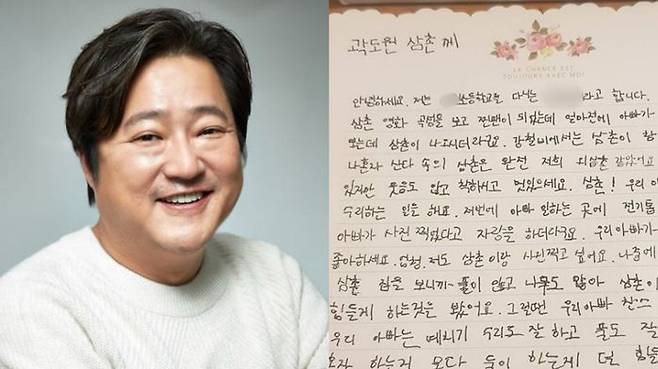 곽도원 삼촌께
LA CHANCE EST
TOUJOURS AVEC MOI
안녕하세요. 저는 초등학교를 다니는 라고 합니다.
삼촌 영화 곡성을 보고 찐팬이 되었는데 얼마전에 아빠가
보는데 삼촌이 나오시더라구요. 강철비에서는 삼촌이 참
나혼자 산다 속의 삼촌은 완전 저희 외삼촌 같았어요
있지만 웃음도 있고 착하시고 멋있으세요. 삼촌! 우리 아
수리하는 일을 해요. 저번에 아빠 일하는 곳에 전기톱
아빠가 사진 찍었다고 자랑을 하더라구요. 우리아빠가
좋아하세요. 엄청. 저도 삼촌이랑 사진찍고 싶어요. 나중에
삼촌 밭을 보니까 풀이 많고 나무도 많아 삼촌이
힘들게 하는것을 봤어요. 그럴땐 우리아빠 찬스
우리 아빠는 예치기 수리도 잘 하고 풀도 잘
혼자 하는거 보다 둘이 하는게 덜 힘들